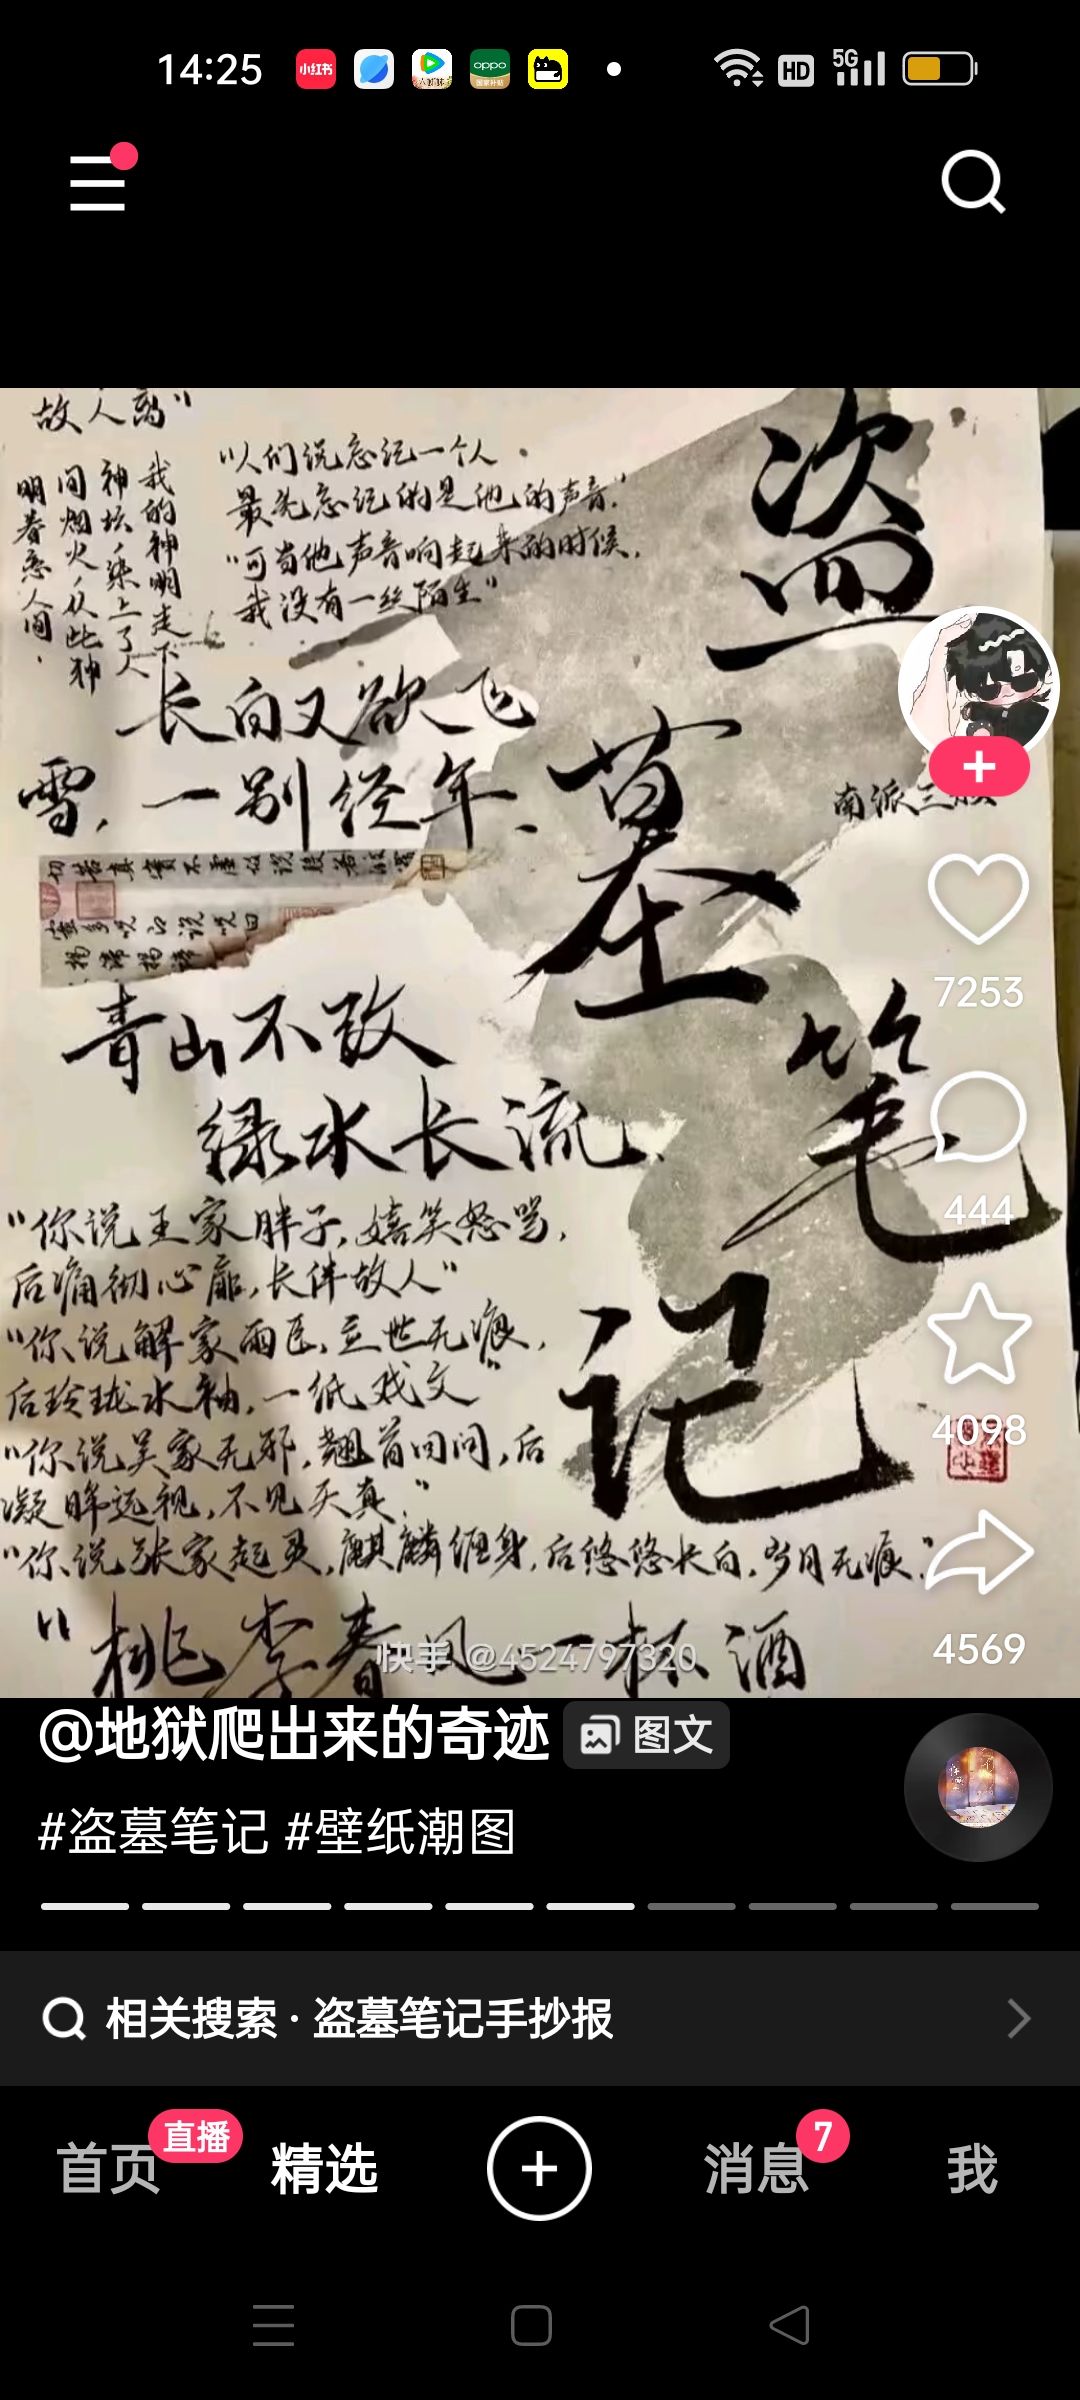 14:25
小红书
oppo
HD
5G
故人离”
“人们说忘记一个人
最先忘记的是他的声音.”
“可当他声音响起来的时候,
我没有一丝陌生”
我的神明走下
神坛,染上了人
间烟火,从此神
明眷恋人间.
长白又欲飞
雪,一别经年.
盗墓笔记
南派三
青山不改
绿水长流.
“你说王家胖子,嬉笑怒骂,
后痛彻心扉,长伴故人”
“你说解家雨臣,立世无痕,
后玲珑水袖,一纸戏文”
“你说吴家无邪,翘首回问,后
凝眸远视,不见天真.”
“你说张家起灵,麒麟缠身,后悠悠长白,岁月无痕.”
“桃李春风一杯酒
快手 @4524797320
7253
444
4098
4569
@地狱爬出来的奇迹 图文
#盗墓笔记 #壁纸潮图
相关搜索 · 盗墓笔记手抄报
首页 直播 精选 消息 7 我